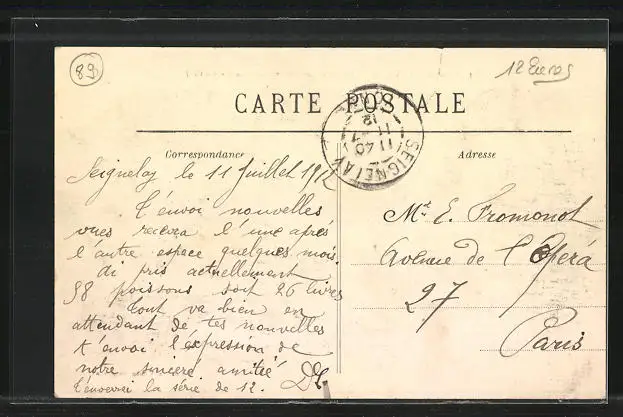 89
12 Euros
CARTE POSTALE
SEIGNELAY
11 40
11 -7
12
Correspondance
Adresse
Seignelay le 11 Juillet 1912
t'envoi nouvelles
vues recevra l'une après
l'autre espace quelques mois
di pris actuellement
98 poissons soit 26 livres
tout va bien en
attendant de tes nouvelles
t'envoi l'expression de
notre sincère amitié
t'enverrai la série de 12.
Mr E. Fromonot
Avenue de l'Opéra
27
Paris